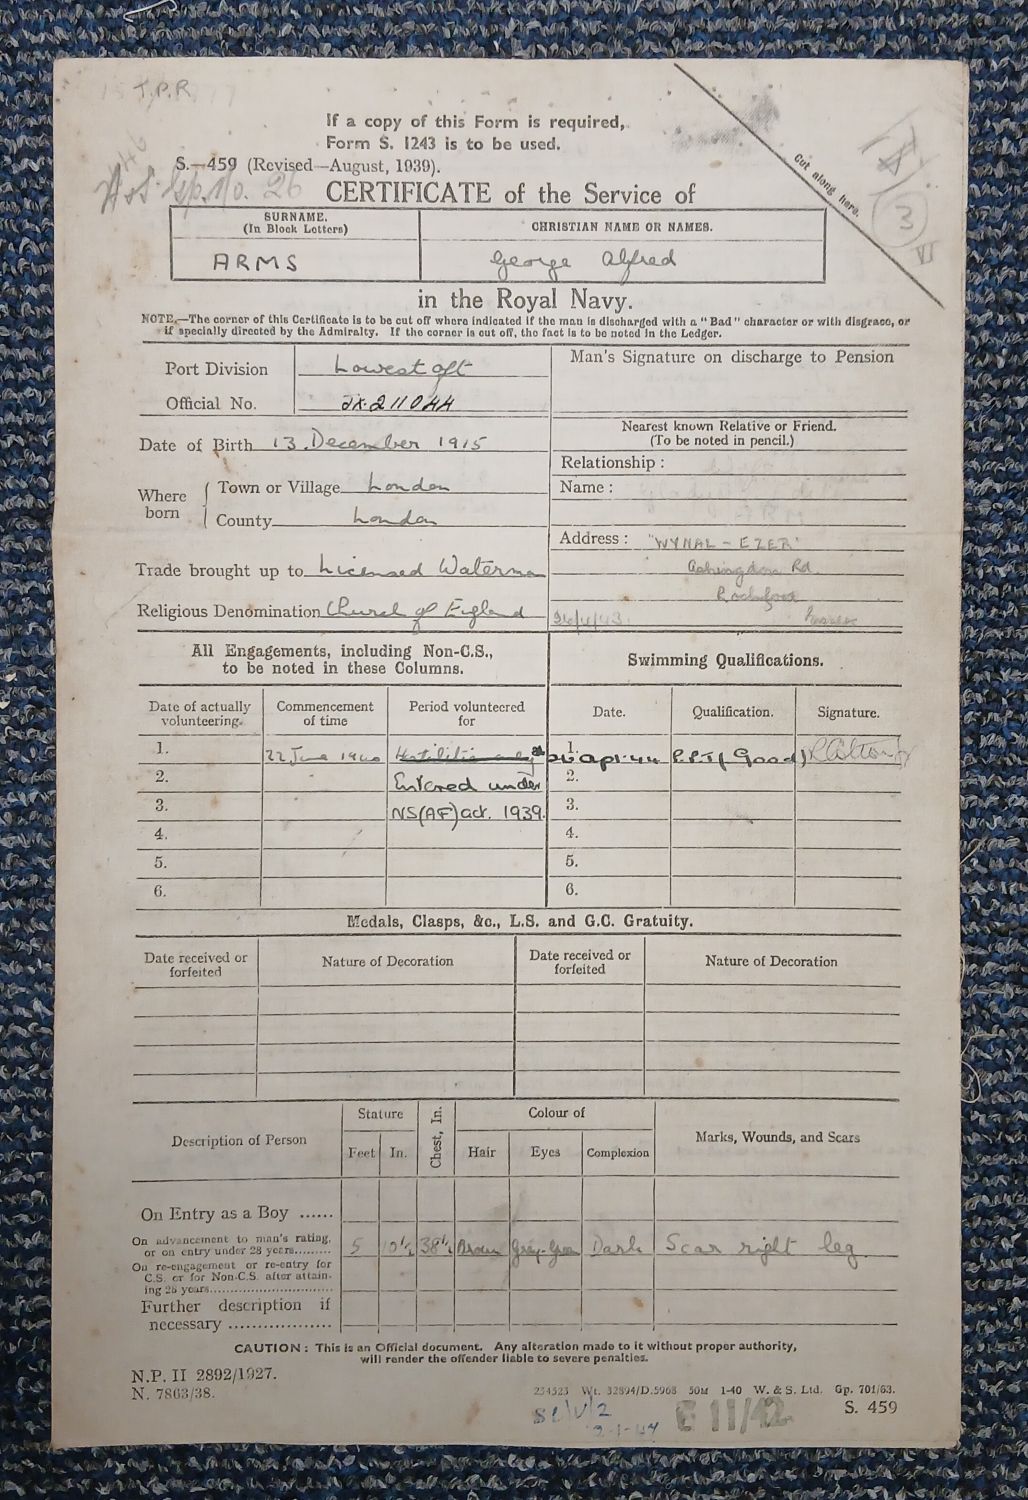 T.P.R.
If a copy of this Form is required,
Form S. 1243 is to be used.
S.—459 (Revised—August, 1939).
Gp. No. 26
CERTIFICATE of the Service of
Cut along here.
3
VI
SURNAME.
(In Block Letters)
CHRISTIAN NAME OR NAMES.
ARMS
George Alfred
in the Royal Navy.
NOTE,—The corner of this Certificate is to be cut off where indicated if the man is discharged with a "Bad" character or with disgrace, or
if specially directed by the Admiralty. If the corner is cut off, the fact is to be noted in the Ledger.
Port Division Lowestoft
Official No. JX.211044
Man's Signature on discharge to Pension
Date of Birth 13. December 1915
Where born
Town or Village London
County London
Trade brought up to Licensed Waterman
Religious Denomination Church of England
Nearest known Relative or Friend.
(To be noted in pencil.)
Relationship :
Name :
Address : "WYNAL - EZER"
Ashingdon Rd.
Rochford
26/4/43. Essex
All Engagements, including Non-C.S.,
to be noted in these Columns.
Swimming Qualifications.
Date of actually volunteering.
Commencement of time
Period volunteered for
Date.
Qualification.
Signature.
1. 22 June 1940 Hostilities only
1. 26 Apr. 44 P.P.T. (Good)
2. Entered under
2.
3. NS(AF) act. 1939.
3.
4.
4.
5.
5.
6.
6.
Medals, Clasps, &c., L.S. and G.C. Gratuity.
Date received or forfeited
Nature of Decoration
Date received or forfeited
Nature of Decoration
Description of Person
Stature
Feet
In.
Chest, In.
Colour of
Hair
Eyes
Complexion
Marks, Wounds, and Scars
On Entry as a Boy ......
On advancement to man's rating,
or on entry under 28 years.........
5 10½ 38½ Brown Grey-Green Dark Scar right leg
On re-engagement or re-entry for
C.S. or for Non-C.S. after attain-
ing 28 years..............................
Further description if
necessary ..................
CAUTION : This is an Official document. Any alteration made to it without proper authority,
will render the offender liable to severe penalties.
N.P. II 2892/1927.
N. 7863/38.
254523 Wt. 32894/D.5968 50M 1-40 W. & S. Ltd. Gp. 701/63.
S. 459
E 11/42